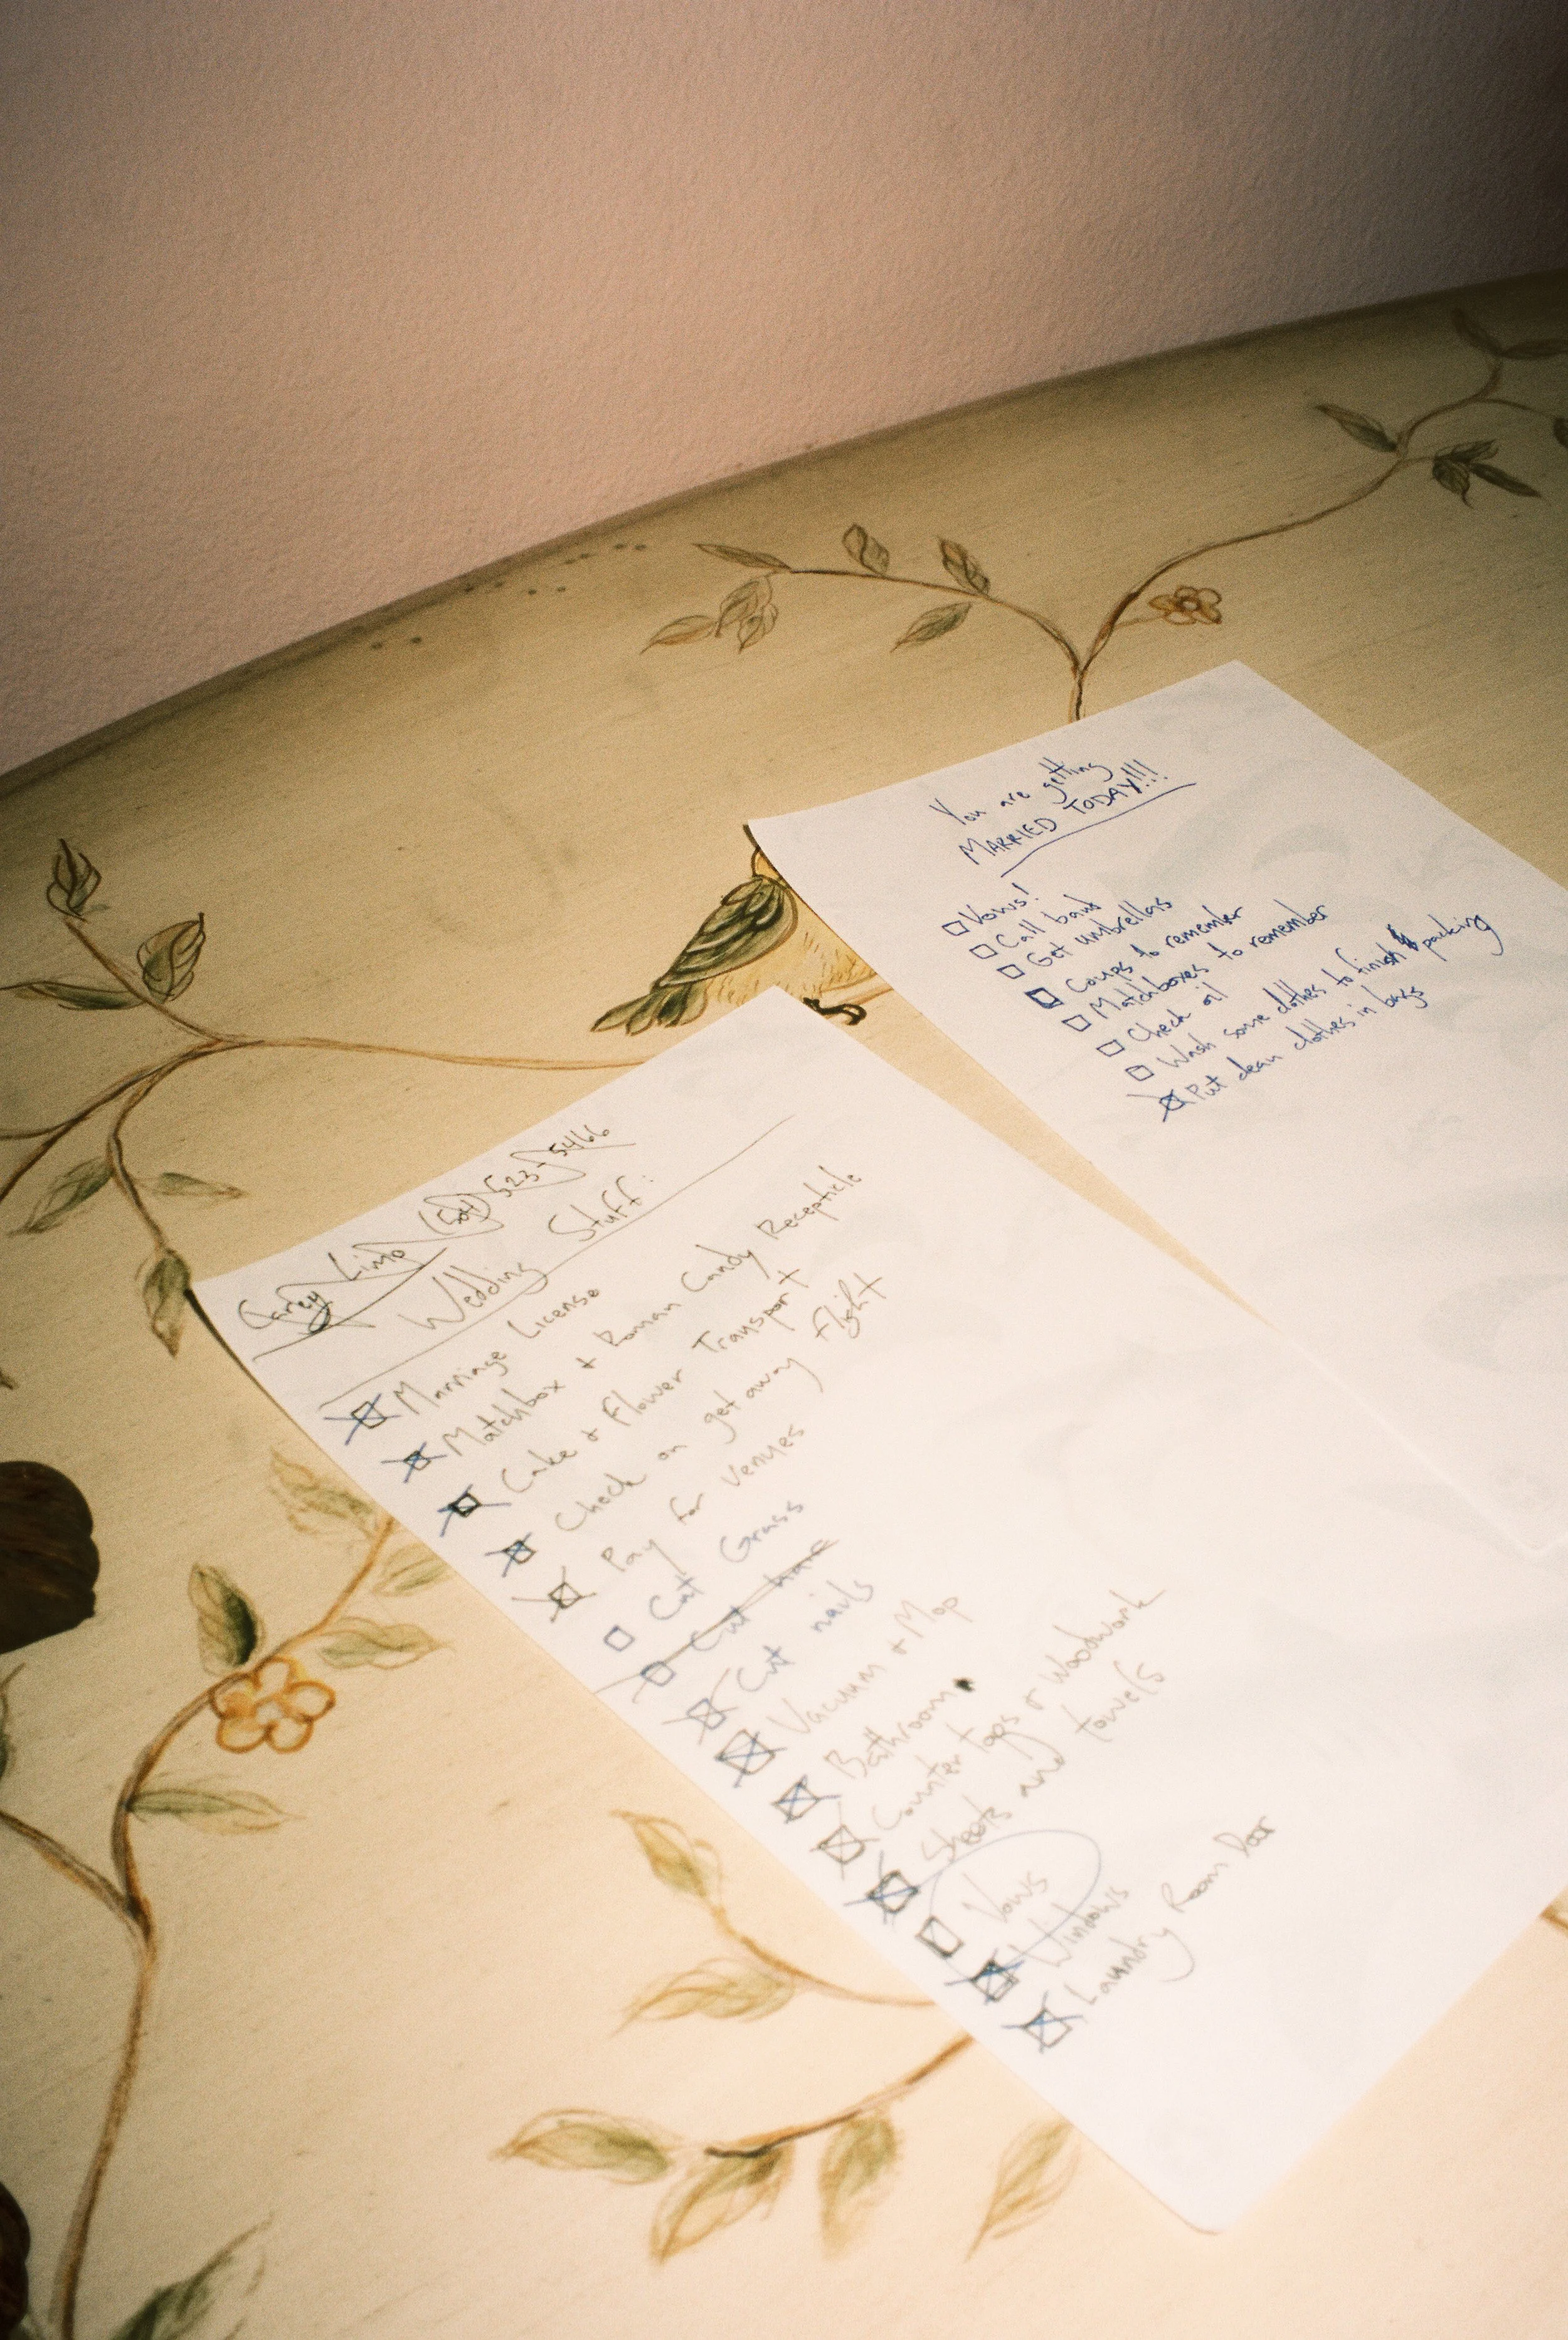 Carey Limo (504) 523-5466
Wedding Stuff:
Marriage License
Matchbox + Roman Candy Recepticle
Cake + Flower Transport
Check on get away flight
Pay for Venues
Cut Grass
Cut hair
Cut nails
Vacuum + Mop
Bathroom
Counter tops + Woodwork
Sheets and towels
Vows
Windows
Laundry Room Door
You are getting
MARRIED TODAY!!!
Vows!
Call band
Get umbrellas
to remember
Matchboxes to remember
Check oil
Wash some clothes to finish packing
Put clean clothes in bags